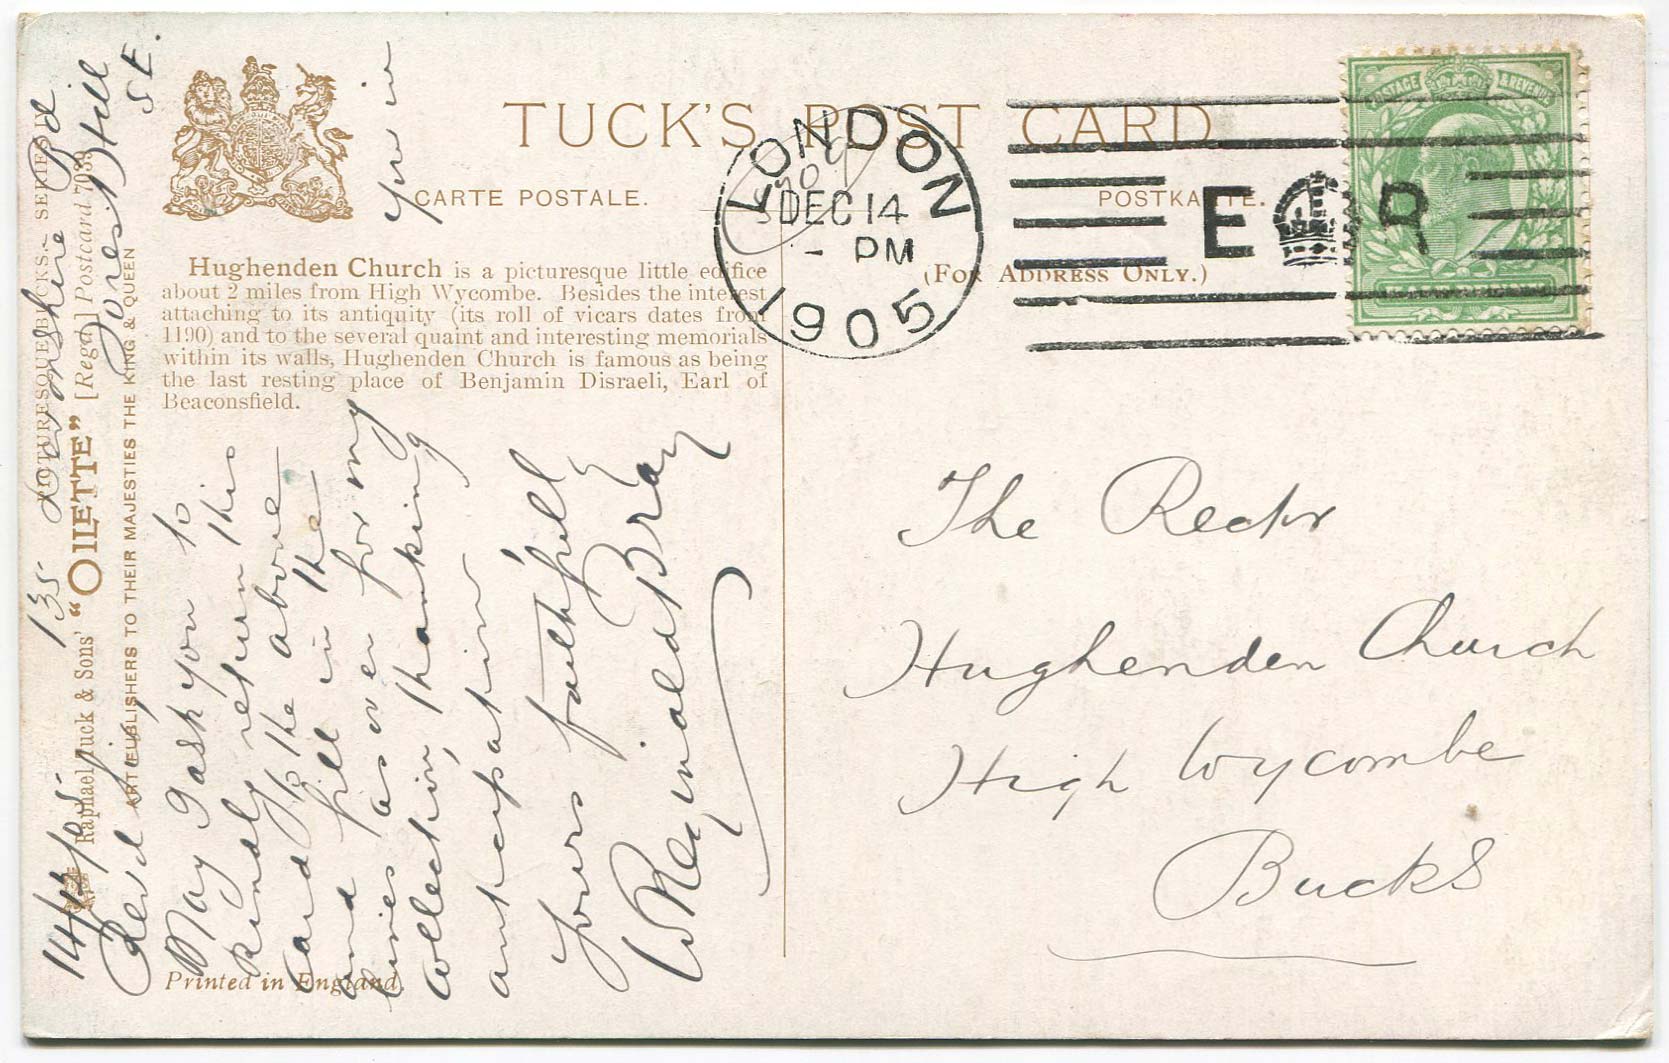 TUCK'S POST CARD
CARTE POSTALE.
POSTKARTE.
(FOR ADDRESS ONLY.)
LONDON
DEC 14
- PM
1905
E R
POSTAGE & REVENUE
Hughenden Church is a picturesque little edifice
about 2 miles from High Wycombe. Besides the interest
attaching to its antiquity (its roll of vicars dates from
1190) and to the several quaint and interesting memorials
within its walls, Hughenden Church is famous as being
the last resting place of Benjamin Disraeli, Earl of
Beaconsfield.
PICTURESQUE BUCKS.- SERIES IV
Raphael Tuck & Sons' "OILETTE" [Regd.] Postcard 7039
ART PUBLISHERS TO THEIR MAJESTIES THE KING & QUEEN
Printed in England.
135 Devonshire Rd
Forest Hill
S E.
Revd Sir
May I ask you to
kindly return this
card to the above
and fill in the
lines as over for my
collection, thanking
you in
anticipation
Yours faithfull
W Reginald Bray
The Rector
Hughenden Church
High Wycombe
Bucks